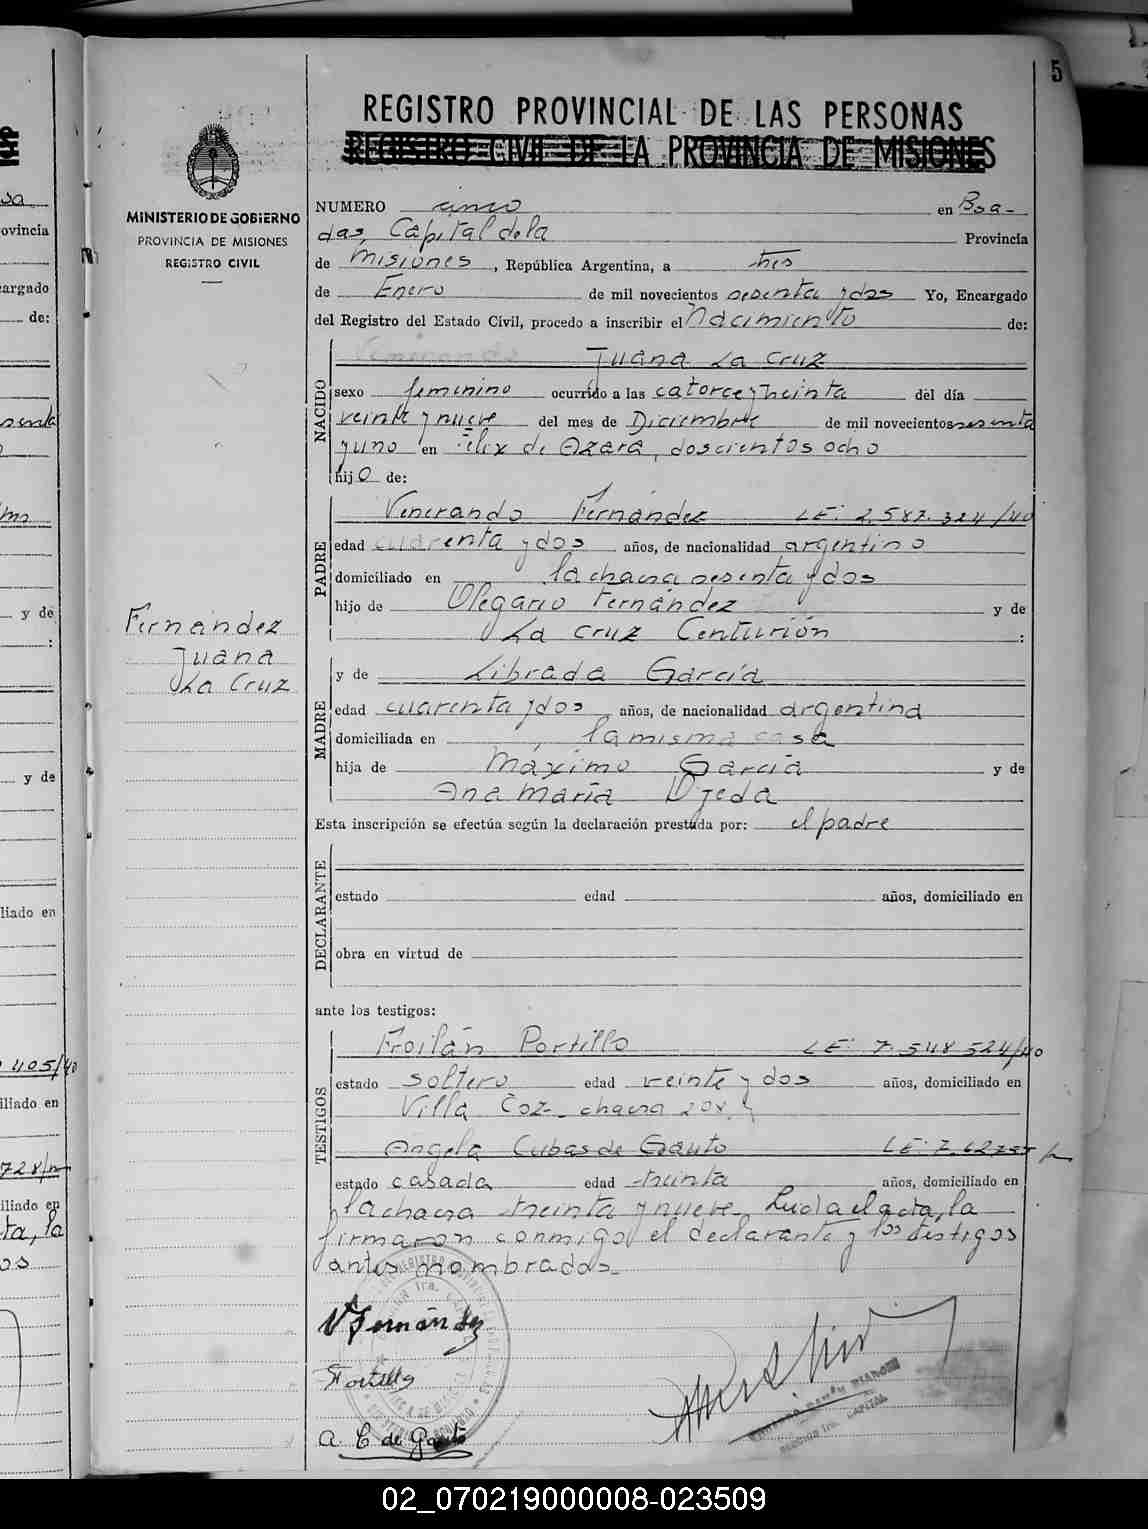 5
REGISTRO PROVINCIAL DE LAS PERSONAS
REGISTRO CIVIL DE LA PROVINCIA DE MISIONES
MINISTERIO DE GOBIERNO
PROVINCIA DE MISIONES
REGISTRO CIVIL
NUMERO cinco en Posa-
das, Capital de la Provincia
de Misiones, República Argentina, a tres
de Enero de mil novecientos sesenta y dos Yo, Encargado
del Registro del Estado Civil, procedo a inscribir el Nacimiento de:
NACIDO
Juana La Cruz
sexo femenino ocurrido a las catorce y treinta del día
veinte y nueve del mes de Diciembre de mil novecientos sesenta
y uno en Félix de Azara, doscientos ocho
hijo de:
PADRE
Venerando Fernández LE: 2.587.324/40
edad cuarenta y dos años, de nacionalidad argentino
domiciliado en la chacra sesenta y dos
hijo de Olegario Fernández y de
La Cruz Centurión :
Fernández
Juana
La Cruz
MADRE
y de Librada García
edad cuarenta y dos años, de nacionalidad argentina
domiciliada en la misma casa
hija de Máximo García y de
Ana María Ojeda
Esta inscripción se efectúa según la declaración prestada por: el padre
DECLARANTE
estado edad años, domiciliado en
obra en virtud de
ante los testigos:
TESTIGOS
Froilán Portillo LE: 7.548.524/40
estado soltero edad veinte y dos años, domiciliado en
Villa Coz - chacra
Angela Cubas de Gauto LE:
estado casada edad treinta años, domiciliado en
la chacra treinta y nueve. Leida el acta, la
firmaron conmigo el declarante y los testigos
antes nombrados.
V Fernández
Portillo
A. C de Gauto
02_070219000008-023509